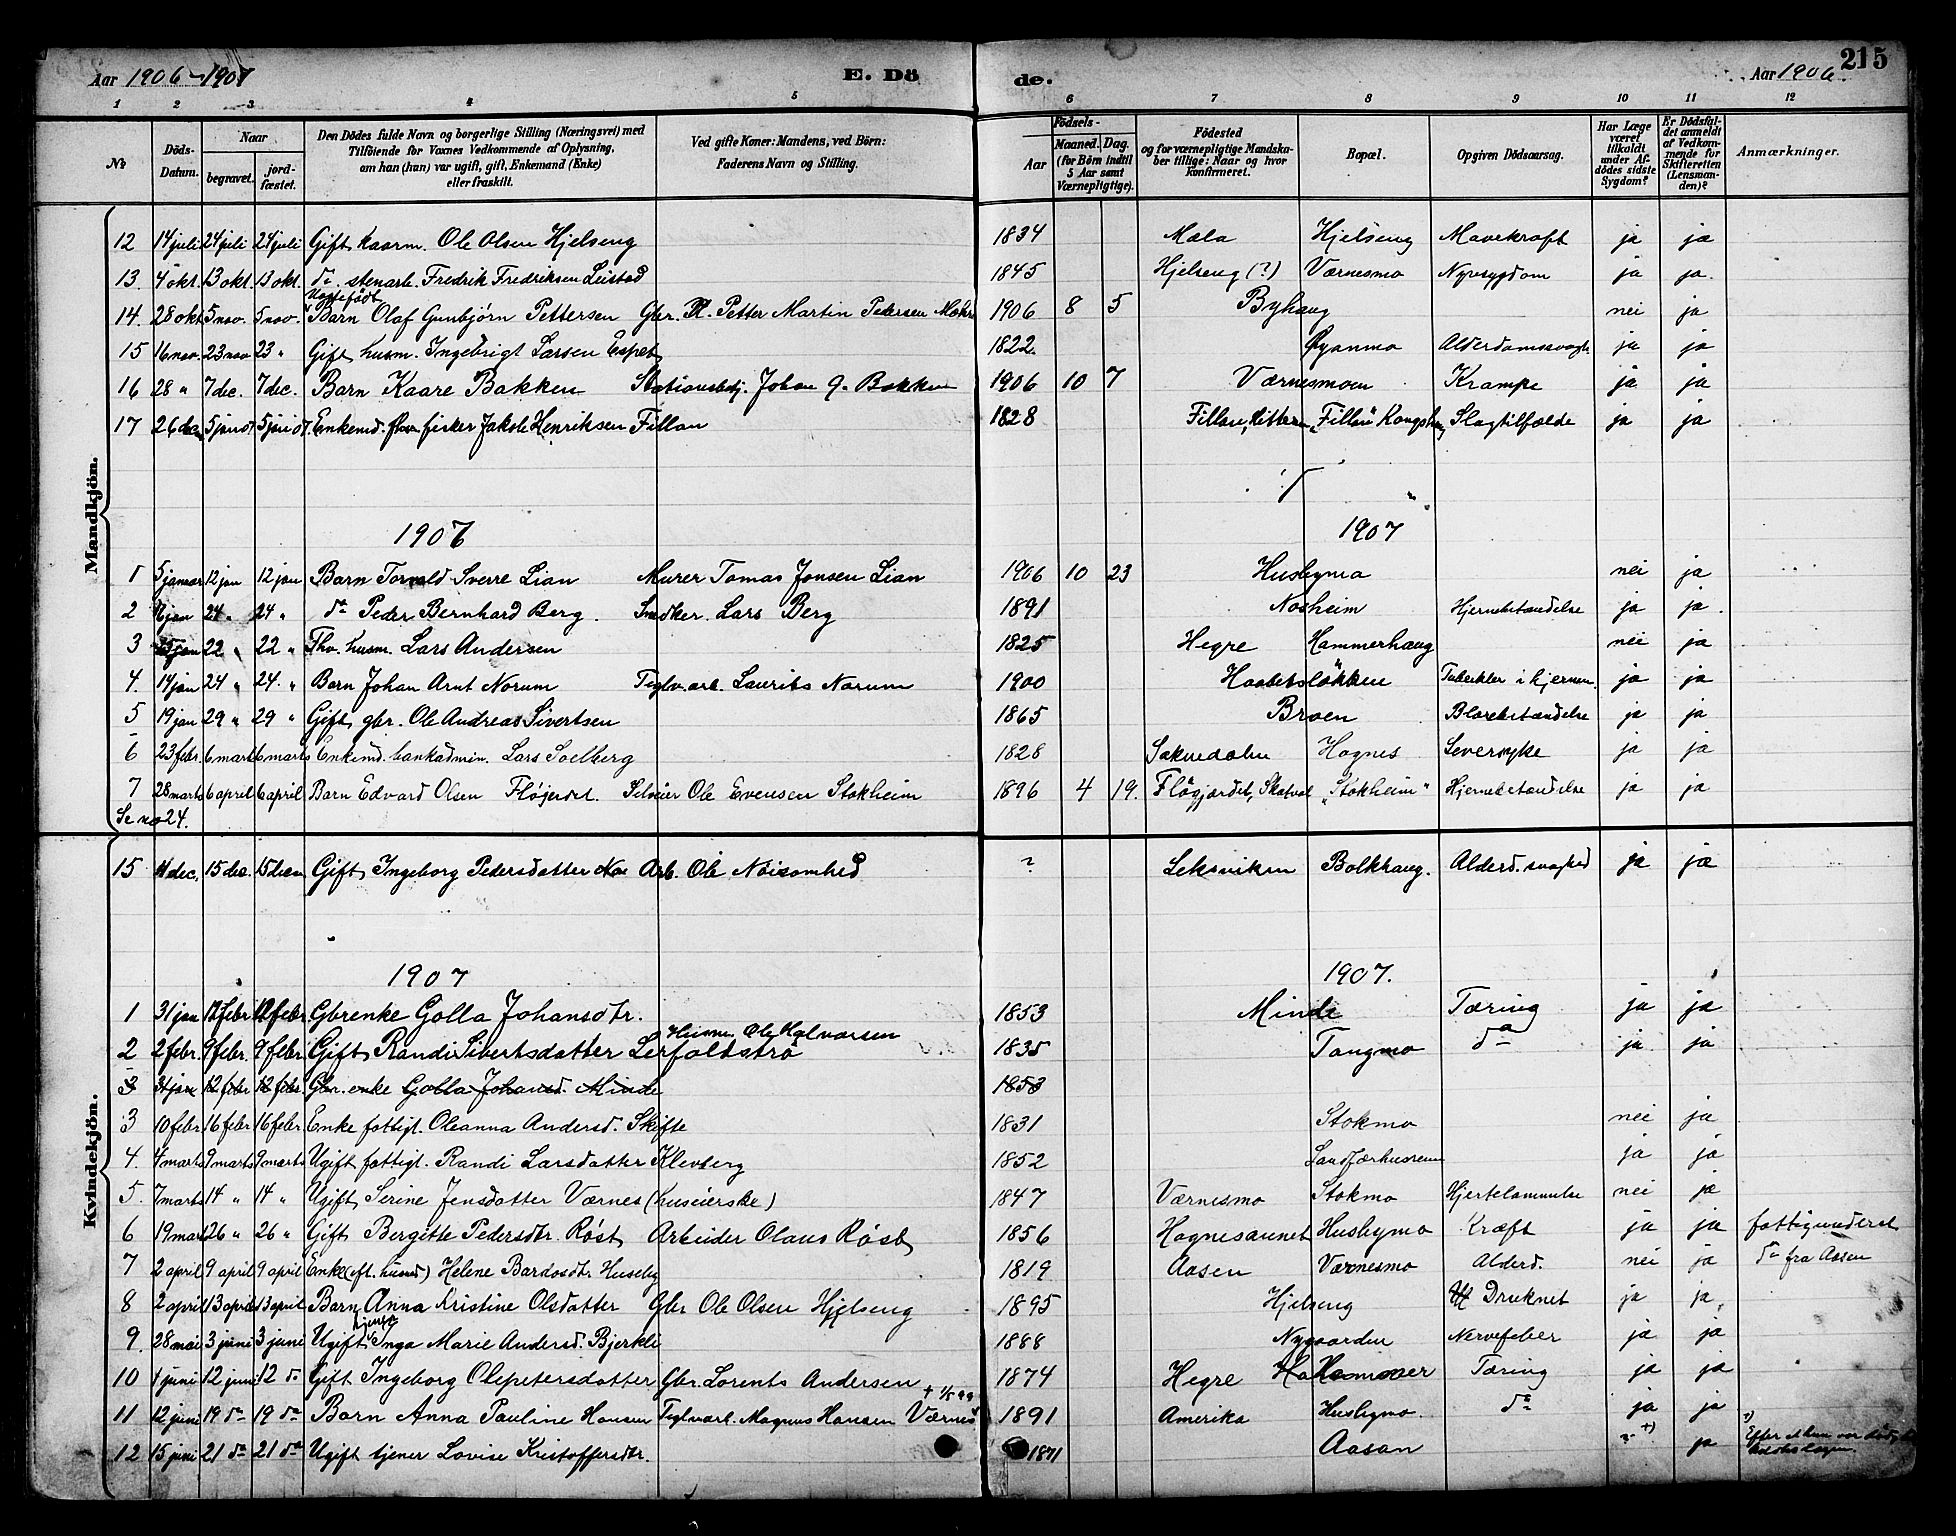 Aar 1906-1907 E. Döde. Aar 1906. 215
1 2 3 4 5 6 7 8 9 10 11 12
No Döds-Datum. Naar begravet. jord-fæstet. Den Dödes fulde Navn og borgerlige Stilling (Næringsvei) med Tilföiende for Voxnes Vedkommende af Oplysning, om han (hun) var ugift, gift, Enkemand (Enke) eller fraskilt. Ved gifte Koner: Mandens, ved Börn: Faderens Navn og Stilling. Födsels- Aar Maaned. Dag. (for Börn indtil 5 Aar samt Værnepligtige). Födested og for værnepligtige Mandskaber tillige: Naar og hvor konfirmeret. Bopæl. Opgiven Dödsaarsag. Har Læge været tilkaldt under Afdödes sidste Sygdom? Er Dödsfaldet anmeldt af Vedkommende for Skifteretten (Lensmanden)? Anmærkninger.
Mandkjön.
12 14 juli 24 juli 24 juli Gift kaarm. Ole Olsen Hjelseng 1834 Mala Hjelseng Mavekræft ja ja
13. 4 okt. 13 okt. 13 okt. do. stenarb. Fredrik Fredriksen Leistad 1845 Hjelseng (?) Værnesmo Nyresygdom ja ja.
14. 28 okt 5 nov. 5 nov. Uægtefödt Barn Olaf Gunbjørn Pettersen Gbr. Petter Martin Pedersen 1906 8 5 Byhaug nei ja
15 16 nov. 23 nov 23 " Gift husm. Ingebrigt Larsen Espet 1822. Øyanmo Alderdomssvagh. ja ja
16 28 " 7 dec. 7 dec. Barn Kaare Bakken Stationsbetj. Johan G. Bakken 1906 10 7 Værnesmoen Krampe ja ja
17 26 dec 5 jan 07 5 jan 07 Enkemd. fisker Jakob Henriksen Fillan 1828 Fillan, Hitteren "Fillan" Kongshaug Slagtilfælde ja ja
1907 1907
1 5 januar 12 jan 12 jan Barn Torvald Sverre Lian Murer Tomas Jonsen Lian 1906 10 23 Husbymo nei ja
2 jan 24 " 24 " do Peder Bernhard Berg. Snedker. Lars Berg 1891 Nosheim Hjernebetændelse ja ja.
3 jan 22 " 22 " Fhv. husm. Lars Andersen 1825 Hegre Hammerhaug nei ja
4. 14 jan 24 " 24. " Barn Johan Arnt Norum Teglv.arb. Laurits Norum 1900 Haabetsløkken Tuberkler i hjernen. ja ja
5 19 jan 29 " 29 " Gift gbr. Ole Andreas Sivertsen 1865 Broen Blærebetændelse ja ja
6 23 febr. 6 marts 6 marts Enkemd. bankadmin. Lars Soelberg 1828 Soknedalen Hognes Leversyke ja ja
7 28 marts 6 april 6 april Barn Edvard Olsen Fløjerdet. Selveier Ole Evensen Stokheim 1896 4 19. Fløgjærdet, Skatval "Stokheim" Hjernebetændelse ja ja
Se no 24.
Kvindekjön.
15 4 dec. 15 dec. 15 decm Gift Ingeborg Pedersdatter Arb. Ole Nøisomhed ? Leksviken Bolkhaug. Alderd.svaghed ja ja
1907 1907.
1 31 jan 12 febr 12 febr. Gbrenke Golla Johansdtr. 1853 Minde Tæring ja ja
2 2 febr. 9 febr. 9 febr. Gift Randi Sivertsdatter Lerfaldströ Husm. Ole Halvorsen 1835 Tangmo do ja ja
3 31 jan 12 febr 12 febr. Gbr. enke Golla Johansd. Minde 1853
3 10 febr 16 febr 16 febr. Enke fattigl. Oleanna Andersd. Skifte 1831 Stokmo nei ja
4. 4 marts 9 marts 9 marts Ugift fattigl. Randi Larsdatter Klevberg 1852 ja ja
5. 7 marts 14 " 14 " Ugift Serine Jensdatter Værnes (huseierske) 1847 Værnesmo Stokmo Hjertelammelse nei ja
6 19 marts 26 " 26 " Gift Bergitte Pedersdtr. Røst Arbeider Olaus Røst 1856 Hognesaunet Husbymo Kræft ja ja fattigunderst
7 2 april 9 april 9 april Enke (eft. husmd) Helene Bardosdtr. Huseby 1819 Aasen Værnesmo Alderd. nei ja do fra Aasen
8 2 april 13 april 13 april Barn Anna Kristine Olsdatter Gbr Ole Olsen Hjelseng 1895 Hjelseng Druknet ja ja,
9. 28 mai 3 juni 3 juni Ugift tjener Inga Marie Andersd. Bjerkli 1888 Nygaarden Nervefeber ja ja
10 4 juni 12 juni 12 do Gift Ingeborg Olepetersdatter Gbr. Lorents Andersen 1874 Hegre Tæring ja ja
11 12 juni 19 do 19 do Barn Anna Pauline Hansen Teglv.arb. Magnus Hansen Værnes 1891 Amerika Husbymo. do ja ja
12 15 juni 21 do 21 do Ugift tjener Lovise Kristoffersdtr. 1871 Aasan ? +) ja +) Efter at hun var död